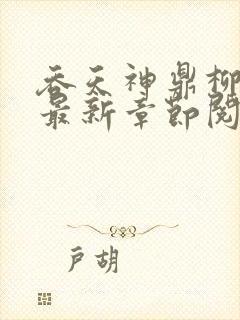 吞天神鼎柳
最新章节阅
户胡